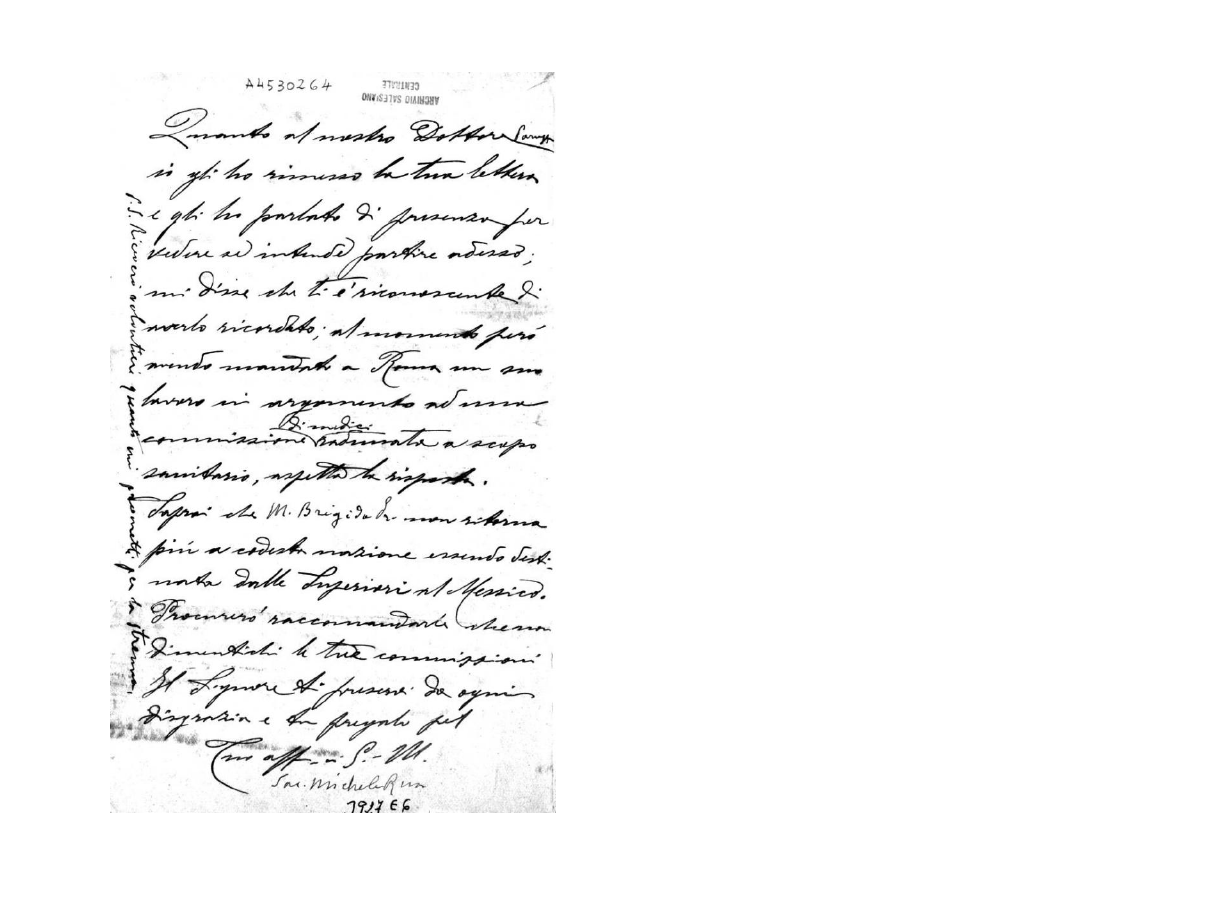 A4530264
ARCHIVIO SALESIANO
CENTRALE
Quanto al nostro Dottore
io gli ho rimesso la tua lettera
e gli ho parlato di presenza per
vedere se intende partire adesso;
mi disse che ti é riconoscente di
averlo ricordato; al momento peró
avendo mandato a Roma un suo
lavoro in argomento ad una
di medici
commissione radunata a scopo
sanitario, aspetta la risposta.
Saprai che M. Brigida Pr. non ritorna
piú a codesta nazione essendo desti-
nata dalle Superiori al Messico.
Procureró raccomandarle che non
dimentichi le tue commissioni
Il Signore ti preservi da ogni
disgrazia e tu pregalo pel
Tuo aff. in G. M.
Sac. Michele Rua
1927 E6
P.S. Riceveró volontieri quanto mi prometti per la strenna.